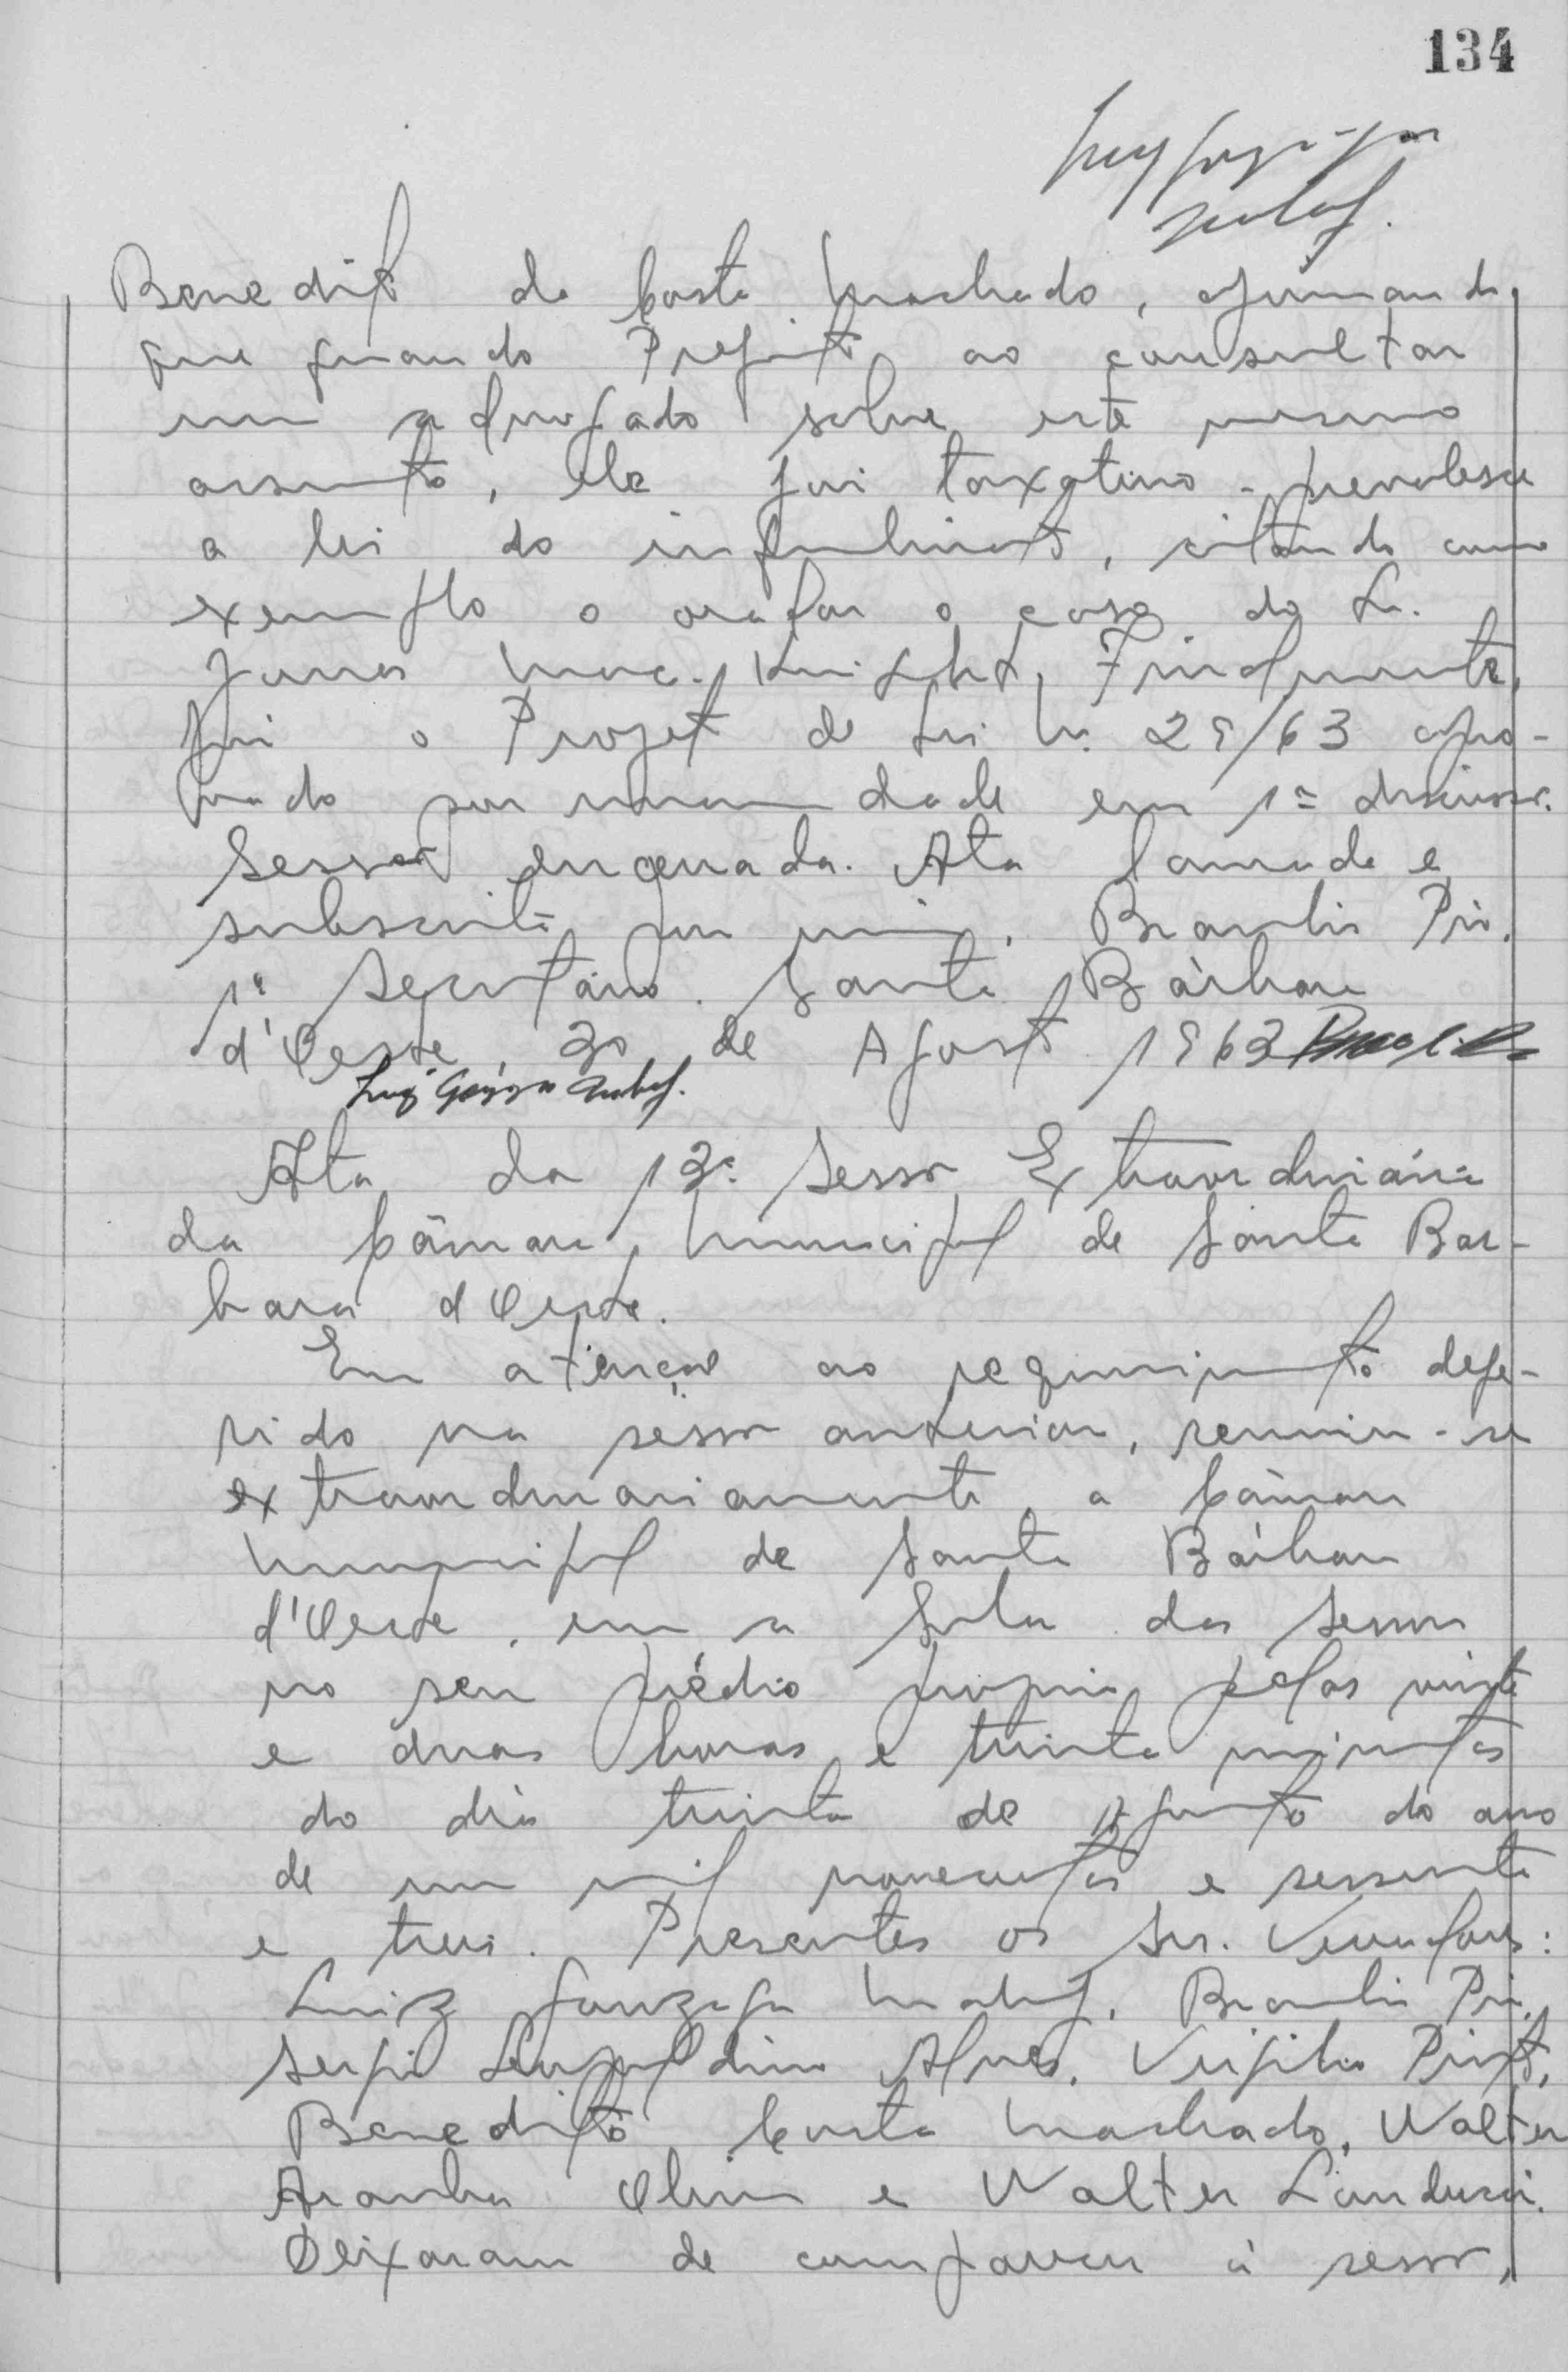 134
Benedito da Costa Machado, afirmando
que quando Prefeito ao consultar
um advogado sobre este mesmo
assunto, ele foi taxativo - prevalesce
a lei do inquilinato, citando como
exemplo o orador o caso do Sr.
James Mac. Knight. Finalmente,
foi o Projeto de Lei N. 29/63 apro-
vado por unanimidade em 1ª discussão.
Sessão encerrada. Ata lavrada e
subscrita por mim, Braulio Pio,
1º Secretário. Santa Bárbara
d'Oeste, 30 de Agosto 1963
Luiz Gonzaga
Ata da 13ª Sessão Extraordinária
da Câmara Municipal de Santa Bar-
bara d'Oeste.
Em atenção ao requerimento defe-
rido na sessão anterior, reuniu-se
extraordinariamente, a Câmara
Municipal de Santa Bárbara
d'Oeste, em a Sala das Sessões
no seu prédio próprio pelas vinte
e duas horas e trinta minutos
do dia trinta de Agosto do ano
de um mil novecentos e sessenta
e treis. Presentes os Srs. Vereadores:
Luiz Gonzaga Braulio Pio,
Sergio Leopoldino Alves, Virgilio
Benedito Costa Machado, Walter
Aranha e Walter Landucci.
Deixaram de comparecer à sessão,